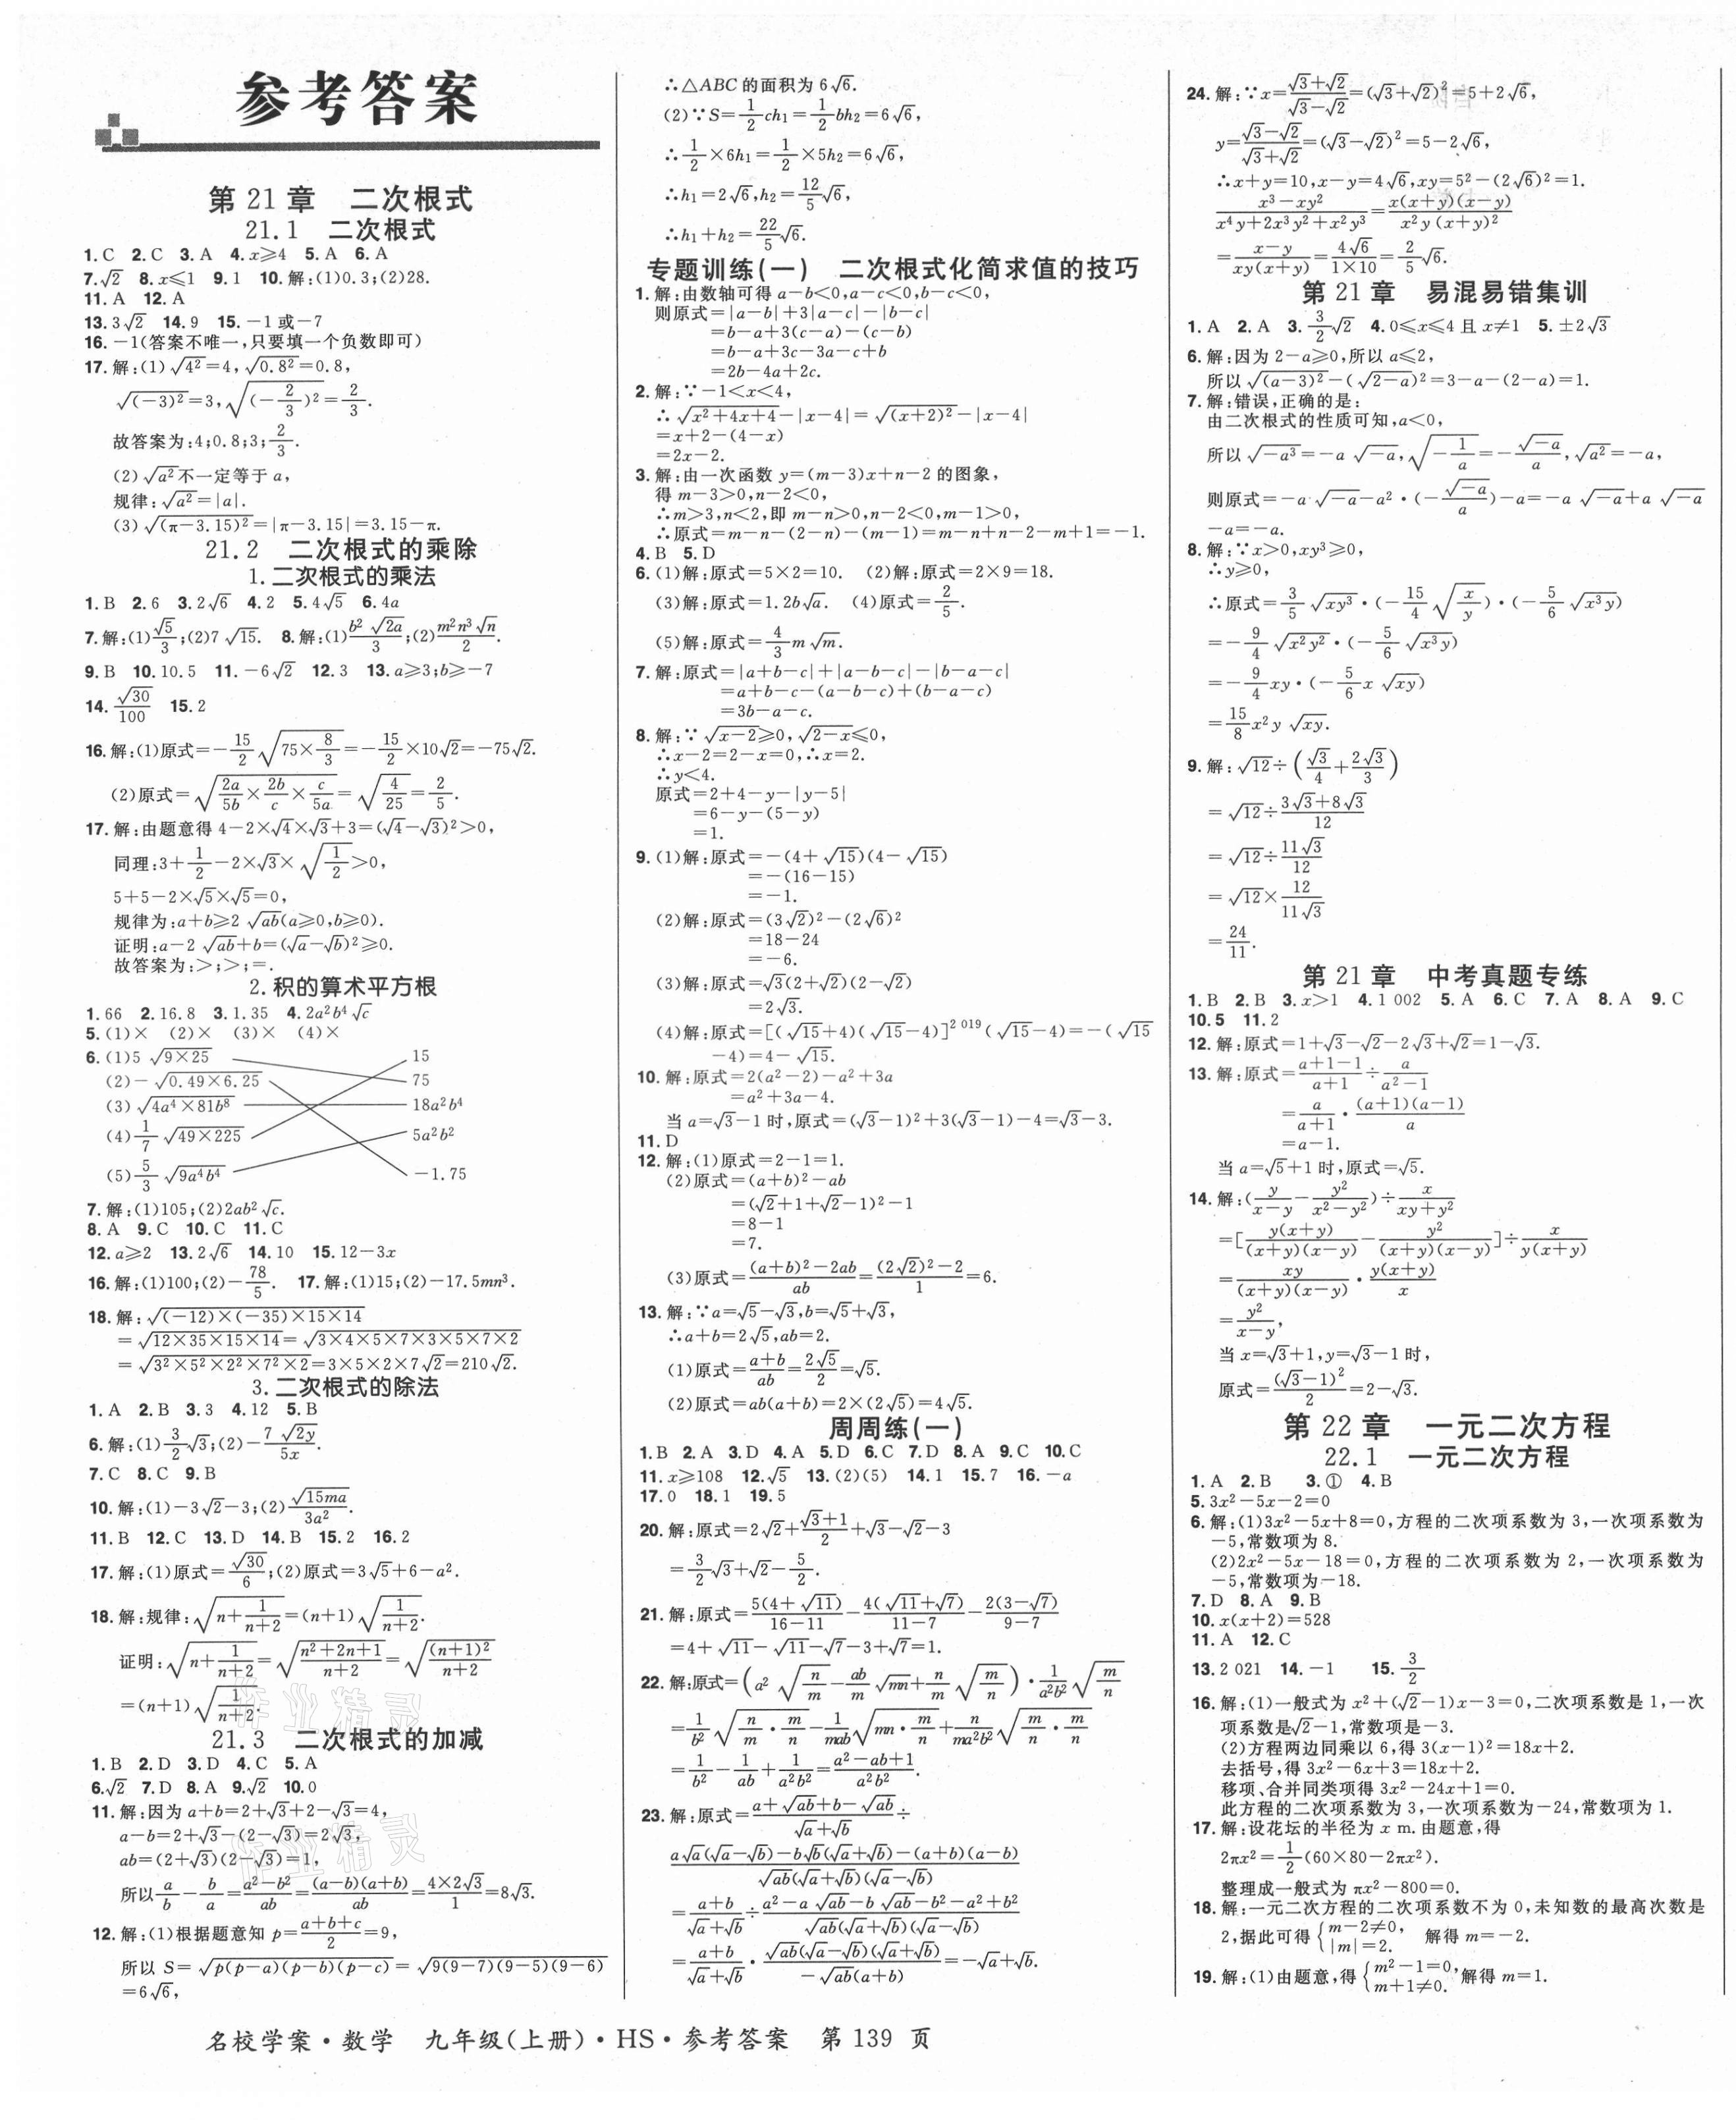 参考答案
第 21 章　二次根式
21.1　二次根式
1. C　2. C　3. A　4. x≥4　5. A　6. A
7. √2　8. x≤1　9. 1　10. 解:(1)0.3;(2)28.
11. A　12. A
13. 3√2　14. 9　15. －1 或－7
16. －1(答案不唯一,只要填一个负数即可)
17. 解:(1)√(4²)=4,√(0.8²)=0.8,
√((－3)²)=3,√((－2/3)²)=2/3.
故答案为:4;0.8;3;2/3.
(2)√(a²)不一定等于 a,
规律:√(a²)=|a|.
(3)√((π－3.15)²)=|π－3.15|=3.15－π.
21.2　二次根式的乘除
1.二次根式的乘法
1. B　2. 6　3. 2√6　4. 2　5. 4√5　6. 4a
7. 解:(1)√5/3;(2)7√15.　8. 解:(1)b²√(2a)/3;(2)m²n³√n/2.
9. B　10. 10.5　11. －6√2　12. 3　13. a≥3;b≥－7
14. √30/100　15. 2
16. 解:(1)原式=－15/2√(75×8/3)=－15/2×10√2=－75√2.
(2)原式=√(2a/5b×2b/c×c/5a)=√(4/25)=2/5.
17. 解:由题意得 4－2×√4×√3+3=(√4－√3)²>0,
同理:3+1/2－2×√3×√(1/2)>0,
5+5－2×√5×√5=0,
规律为:a+b≥2√(ab)(a≥0,b≥0).
证明:a－2√(ab)+b=(√a－√b)²≥0.
故答案为:>;>;=.
2.积的算术平方根
1. 66　2. 16.8　3. 1.35　4. 2a²b⁴√c
5. (1)×　(2)×　(3)×　(4)×
6. (1)5√(9×25)　15
(2)－√(0.49×6.25)　75
(3)√(4a⁴×81b⁸)　18a²b⁴
(4)1/7√(49×225)　5a²b²
(5)5/3√(9a⁴b⁴)　－1.75
7. 解:(1)105;(2)2ab²√c.
8. A　9. C　10. C　11. C
12. a≥2　13. 2√6　14. 10　15. 12－3x
16. 解:(1)100;(2)－78/5.　17. 解:(1)15;(2)－17.5mn³.
18. 解:√((－12)×(－35)×15×14)
=√(12×35×15×14)=√(3×4×5×7×3×5×7×2)
=√(3²×5²×2²×7²×2)=3×5×2×7√2=210√2.
3.二次根式的除法
1. A　2. B　3. 3　4. 12　5. B
6. 解:(1)3/2√3;(2)－7√(2y)/5x.
7. C　8. C　9. B
10. 解:(1)－3√2－3;(2)√(15ma)/3a².
11. B　12. C　13. D　14. B　15. 2　16. 2
17. 解:(1)原式=√30/6;(2)原式=3√5+6－a².
18. 解:规律:√(n+1/(n+2))=(n+1)√(1/(n+2)).
证明:√(n+1/(n+2))=√((n²+2n+1)/(n+2))=√((n+1)²/(n+2))
=(n+1)√(1/(n+2)).
21.3　二次根式的加减
1. B　2. D　3. D　4. C　5. A
6. √2　7. D　8. A　9. √2　10. 0
11. 解:因为 a+b=2+√3+2－√3=4,
a－b=2+√3－(2－√3)=2√3,
ab=(2+√3)(2－√3)=1,
所以 a/b－b/a=(a²－b²)/ab=(a－b)(a+b)/ab=4×2√3/1=8√3.
12. 解:(1)根据题意知 p=(a+b+c)/2=9,
所以 S=√(p(p－a)(p－b)(p－c))=√(9(9－7)(9－5)(9－6))
=6√6,
∴△ABC 的面积为 6√6.
(2)∵S=1/2ch₁=1/2bh₂=6√6,
∴1/2×6h₁=1/2×5h₂=6√6,
∴h₁=2√6,h₂=12/5√6,
∴h₁+h₂=22/5√6.
专题训练(一)　二次根式化简求值的技巧
1. 解:由数轴可得 a－b<0,a－c<0,b－c<0,
则原式=|a－b|+3|a－c|－|b－c|
=b－a+3(c－a)－(c－b)
=b－a+3c－3a－c+b
=2b－4a+2c.
2. 解:∵－1<x<4,
∴√(x²+4x+4)－|x－4|=√((x+2)²)－|x－4|
=x+2－(4－x)
=2x－2.
3. 解:由一次函数 y=(m－3)x+n－2 的图象,
得 m－3>0,n－2<0,
∴m>3,n<2,即 m－n>0,n－2<0,m－1>0,
∴原式=m－n－(2－n)－(m－1)=m－n+n－2－m+1=－1.
4. B　5. D
6. (1)解:原式=5×2=10.　(2)解:原式=2×9=18.
(3)解:原式=1.2b√a.　(4)原式=2/5.
(5)解:原式=4/3m√m.
7. 解:原式=|a+b－c|+|a－b－c|－|b－a－c|
=a+b－c－(a－b－c)+(b－a－c)
=3b－a－c.
8. 解:∵√(x－2)≥0,√(2－x)≤0,
∴x－2=2－x=0,∴x=2.
∴y<4.
原式=2+4－y－|y－5|
=6－y－(5－y)
=1.
9. (1)解:原式=－(4+√15)(4－√15)
=－(16－15)
=－1.
(2)解:原式=(3√2)²－(2√6)²
=18－24
=－6.
(3)解:原式=√3(2+√2)(2－√2)
=2√3.
(4)解:原式=[(√15+4)(√15－4)]²⁰¹⁹(√15－4)=－(√15
－4)=4－√15.
10. 解:原式=2(a²－2)－a²+3a
=a²+3a－4.
当 a=√3－1 时,原式=(√3－1)²+3(√3－1)－4=√3－3.
11. D
12. 解:(1)原式=2－1=1.
(2)原式=(a+b)²－ab
=(√2+1+√2－1)²－1
=8－1
=7.
(3)原式=((a+b)²－2ab)/ab=((2√2)²－2)/1=6.
13. 解:∵a=√5－√3,b=√5+√3,
∴a+b=2√5,ab=2.
(1)原式=(a+b)/ab=2√5/2=√5.
(2)原式=ab(a+b)=2×(2√5)=4√5.
周周练(一)
1. B　2. A　3. D　4. A　5. D　6. C　7. D　8. A　9. C　10. C
11. x≥108　12. √5　13. (2)(5)　14. 1　15. 7　16. －a
17. 0　18. 1　19. 5
20. 解:原式=2√2+(√3+1)/2+√3－√2－3
=3/2√3+√2－5/2.
21. 解:原式=5(4+√11)/(16－11)－4(√11+√7)/(11－7)－2(3－√7)/(9－7)
=4+√11－√11－√7－3+√7=1.
22. 解:原式=(a²√(n/m)－ab/m√(mn)+n/m√(m/n))·1/(a²b²)√(m/n)
=1/b²√(n/m·m/n)－1/(mab)√(mn·m/n)+n/(ma²b²)√(m/n·m/n)
=1/b²－1/ab+1/(a²b²)=(a²－ab+1)/(a²b²).
23. 解:原式=(a+√(ab)+b－√(ab))/(√a+√b)÷
(a√a(√a－√b)－b√b(√a+√b)－(a+b)(a－b))/(√(ab)(√a+√b)(√a－√b))
=(a+b)/(√a+√b)÷(a²－a√(ab)－b√(ab)－b²－a²+b²)/(√(ab)(√a+√b)(√a－√b))
=(a+b)/(√a+√b)·(√(ab)(√a－√b)(√a+√b))/(－√(ab)(a+b))=－√a+√b.
24. 解:∵x=(√3+√2)/(√3－√2)=(√3+√2)²=5+2√6,
y=(√3－√2)/(√3+√2)=(√3－√2)²=5－2√6,
∴x+y=10,x－y=4√6,xy=5²－(2√6)²=1.
(x³－xy²)/(x⁴y+2x³y²+x²y³)=x(x+y)(x－y)/(x²y(x+y)²)
=(x－y)/(xy(x+y))=4√6/(1×10)=2/5√6.
第 21 章　易混易错集训
1. A　2. A　3. 3/2√2　4. 0≤x≤4 且 x≠1　5. ±2√3
6. 解:因为 2－a≥0,所以 a≤2,
所以√((a－3)²)－(√(2－a))²=3－a－(2－a)=1.
7. 解:错误,正确的是:
由二次根式的性质可知,a<0,
所以√(－a³)=－a√(－a),√(－1/a)=－√(－a)/a,√(a²)=－a,
则原式=－a√(－a)－a²·(－√(－a)/a)－a=－a√(－a)+a√(－a)
－a=－a.
8. 解:∵x>0,xy³≥0,
∴y≥0,
∴原式=3/5√(xy³)·(－15/4√(x/y))·(－5/6√(x³y))
=－9/4√(x²y²)·(－5/6√(x³y))
=－9/4xy·(－5/6x√(xy))
=15/8x²y√(xy).
9. 解:√12÷(√3/4+2√3/3)
=√12÷(3√3+8√3)/12
=√12÷11√3/12
=√12×12/(11√3)
=24/11.
第 21 章　中考真题专练
1. B　2. B　3. x>1　4. 1 002　5. A　6. C　7. A　8. A　9. C
10. 5　11. 2
12. 解:原式=1+√3－√2－2√3+√2=1－√3.
13. 解:原式=(a+1－1)/(a+1)÷a/(a²－1)
=a/(a+1)·(a+1)(a－1)/a
=a－1.
当 a=√5+1 时,原式=√5.
14. 解:(y/(x－y)－y²/(x²－y²))÷x/(xy+y²)
=[y(x+y)/((x+y)(x－y))－y²/((x+y)(x－y))]÷x/(y(x+y))
=xy/((x+y)(x－y))·y(x+y)/x
=y²/(x－y),
当 x=√3+1,y=√3－1 时,
原式=(√3－1)²/2=2－√3.
第 22 章　一元二次方程
22.1　一元二次方程
1. A　2. B　3. ①　4. B
5. 3x²－5x－2=0
6. 解:(1)3x²－5x+8=0,方程的二次项系数为 3,一次项系数为
－5,常数项为 8.
(2)2x²－5x－18=0,方程的二次项系数为 2,一次项系数为
－5,常数项为－18.
7. D　8. A　9. B
10. x(x+2)=528
11. A　12. C
13. 2 021　14. －1　15. 3/2
16. 解:(1)一般式为 x²+(√2－1)x－3=0,二次项系数是 1,一次
项系数是√2－1,常数项是－3.
(2)方程两边同乘以 6,得 3(x－1)²=18x+2.
去括号,得 3x²－6x+3=18x+2.
移项、合并同类项得 3x²－24x+1=0.
此方程的二次项系数为 3,一次项系数为－24,常数项为 1.
17. 解:设花坛的半径为 x m.由题意,得
2πx²=1/2(60×80－2πx²).
整理成一般式为 πx²－800=0.
18. 解:一元二次方程的二次项系数不为 0,未知数的最高次数是
2,据此可得{m－2≠0, |m|=2.　解得 m=－2.
19. 解:(1)由题意,得{m²－1=0, m+1≠0.解得 m=1.
名校学案·数学　九年级(上册)·HS·参考答案　第 139 页
作业精灵
作业精灵